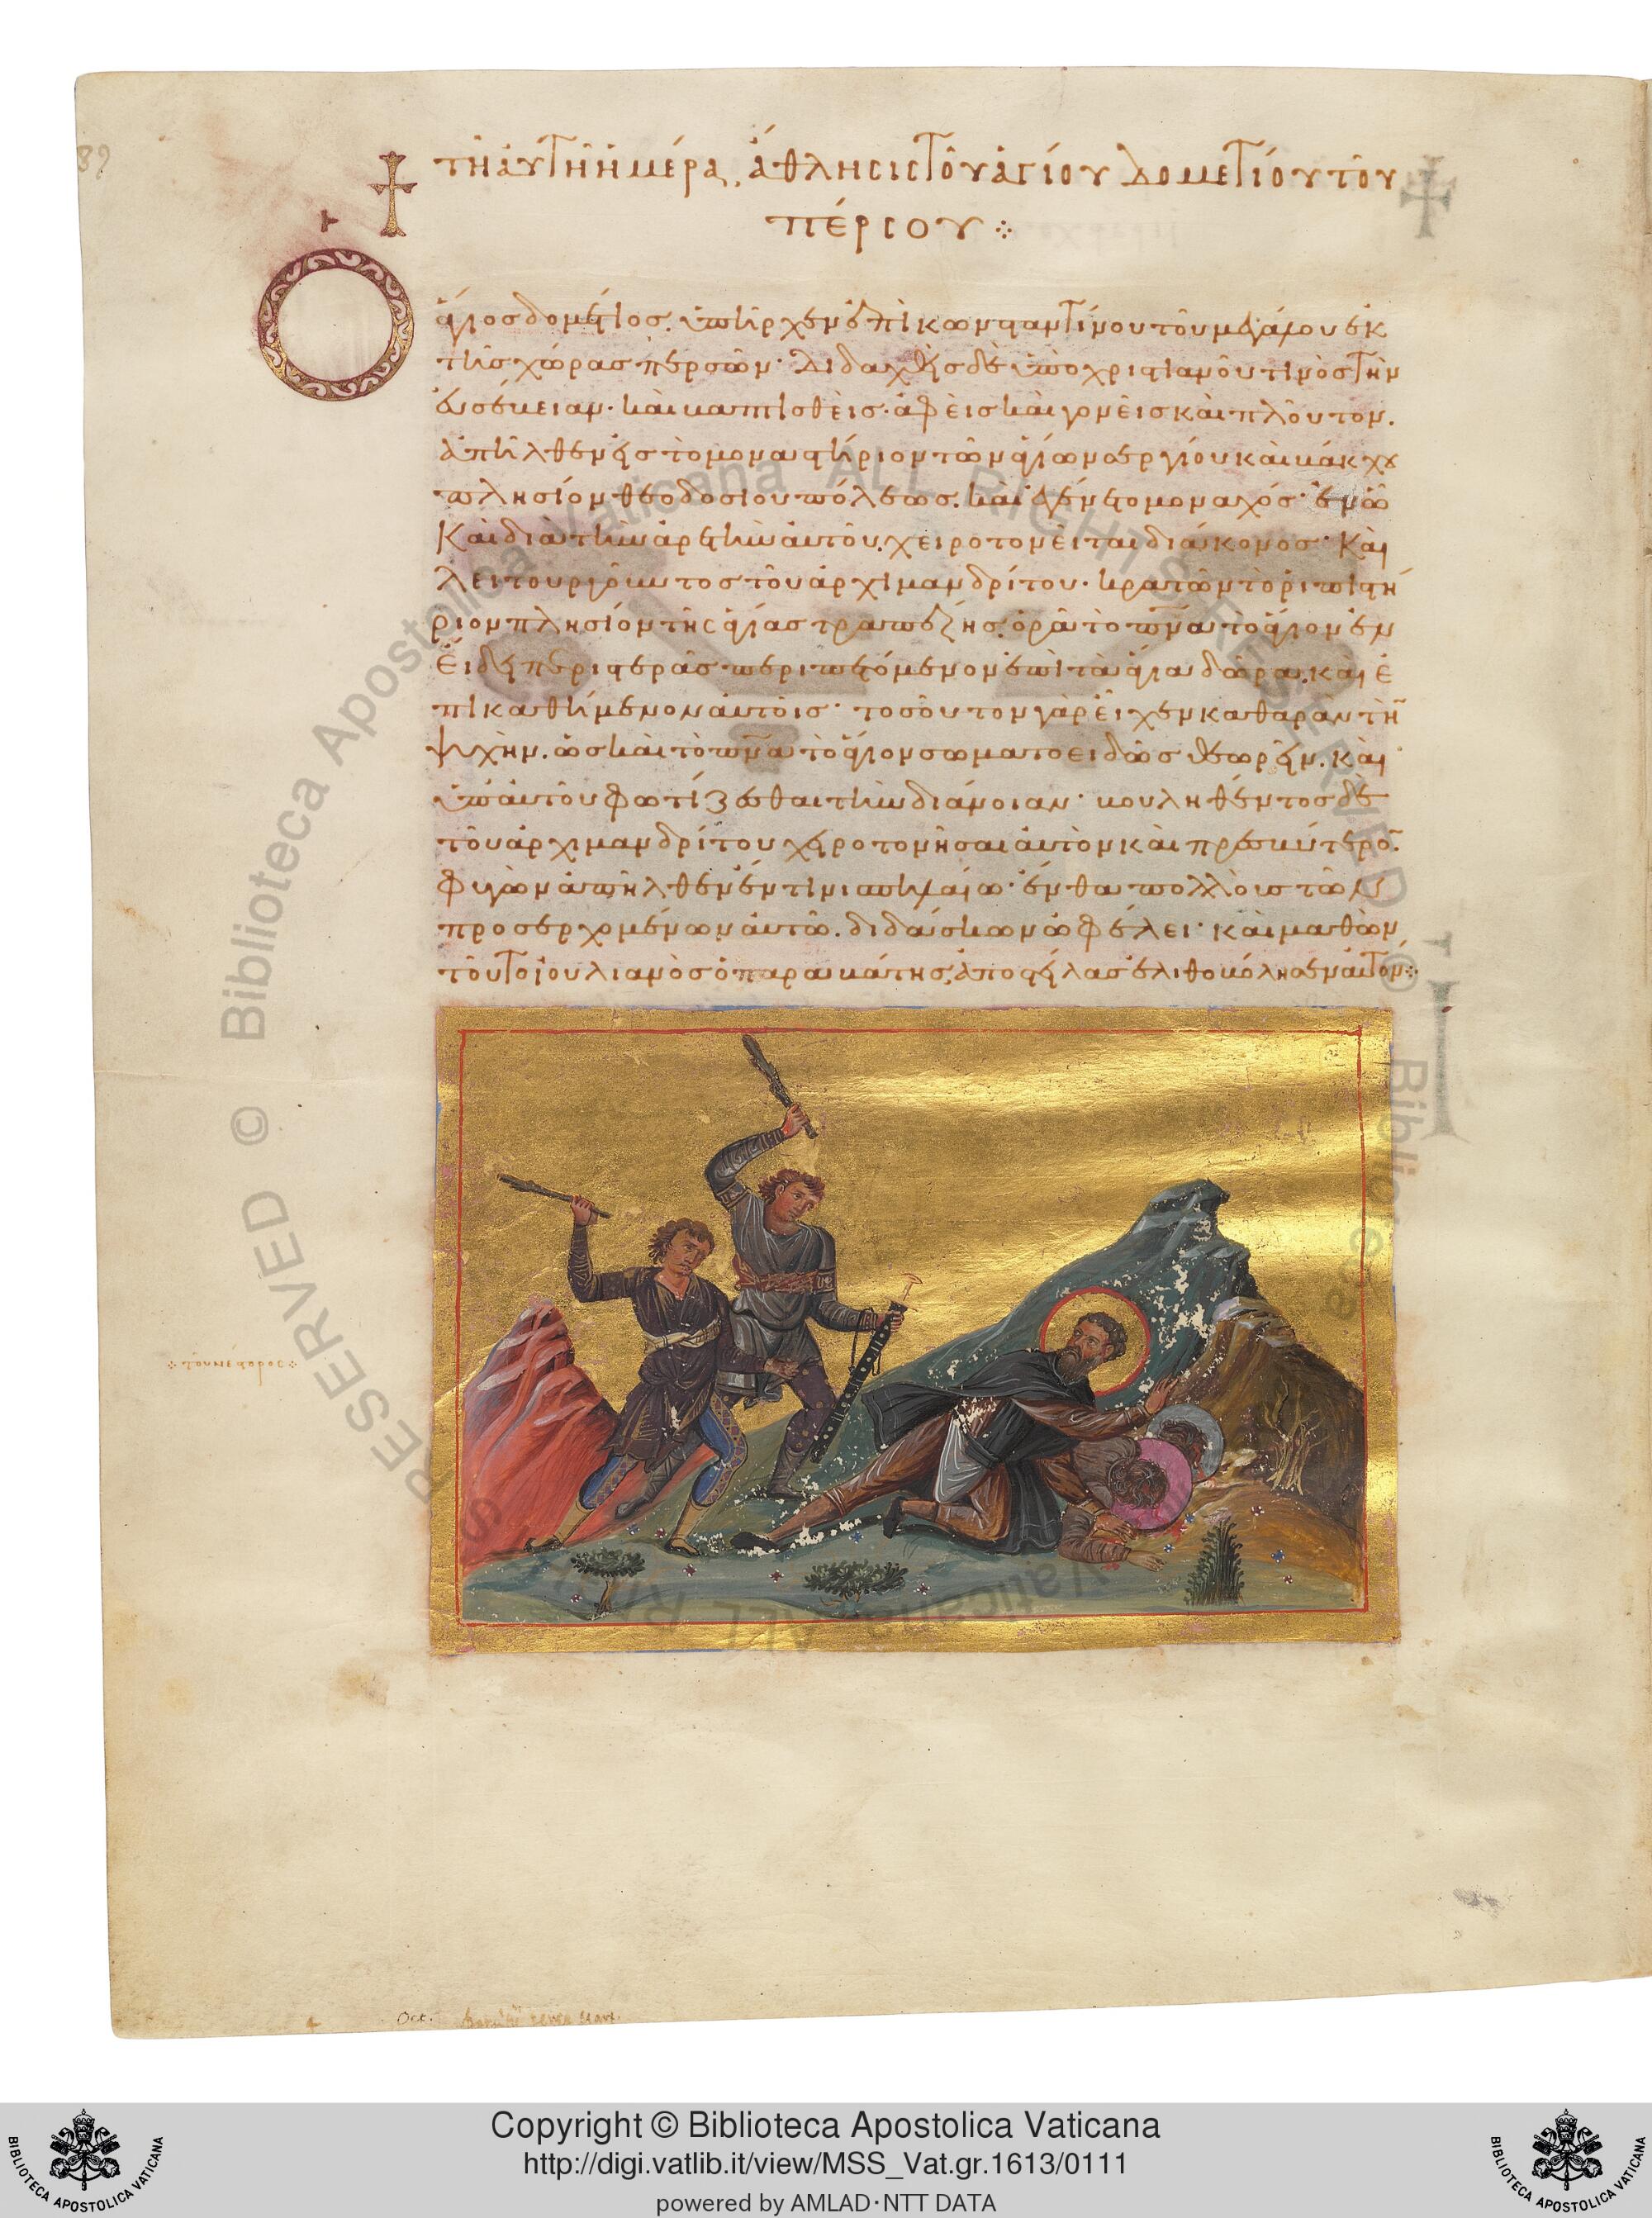 89
τῆ αὐτῆ ἡμέρα, ἄθλησις τοῦ ἁγίου Δομετίου τοῦ
πέρσου
Ο
ἅγιος δομέτιος. ὑπῆρχεν ἐπὶ κωνσταντίνου τοῦ μεγάλου ἐκ
τῆς χώρας περσῶν· διδαχθεὶς δὲ ὑπὸ χριστιανοῦ τινὸς τὴν
ἐυσέβειαν. καὶ βαπτισθεὶς. ἀφεὶς καὶ γονεῖς καὶ πλοῦτον.
ἀπῆλθεν εἰς τὸ μοναστήριον τῶν ἁγίων σεργίου καὶ βάκχου
πλησίον θεοδοσίου πόλεως. καὶ γέγονε μοναχός· ἐν ὧ
Καὶ διὰ τὴν ἀρετὴν ἀυτοῦ. χειροτονεῖται διάκονος· Καὶ
λειτουργοῦντος τοῦ ἀρχιμανδρίτου. κρατῶν τὸ ριπιστή
ριον πλησίον τῆς ἁγίας τραπέζης. ὁρᾶ τὸ πνα τὸ ἅγιον ἐν
Εἴδει περιστερᾶς περιπετόμενον ἐπὶ τὰ ἅγια δῶρα. καὶ ἐ
πικαθήμενον αὐτοῖς· τοσοῦτον γὰρ εἶχεν καθαρὰν τὴν
ψυχὴν. ὡς καὶ τὸ πνα τὸ ἅγιον σωματοειδῶς θεωρεῖν. καὶ
ὑπ' αὐτοῦ φωτίζεσθαι τὴν διάνοιαν· βουληθέντος δὲ
τοῦ ἀρχιμανδρίτου χειροτονῆσαι αὐτὸν καὶ πρεσβύτερον.
Φυγὼν ἀπῆλθεν ἔν τινι σπηλαίω· ἔνθα πολλοὺς τῶν
προσερχομένων αὐτῶ. διδάσκων ὠφέλει· καὶ μαθὼν
τοῦτο ἰουλιανὸς ὁ παραβάτης, ἀποστείλας ἐλιθοβόλησεν αὐτόν
τοῦ νέστορος
Oct.
Copyright © Biblioteca Apostolica Vaticana
http://digi.vatlib.it/view/MSS_Vat.gr.1613/0111
powered by AMLAD·NTT DATA
BIBLIOTECA APOSTOLICA VATICANA
BIBLIOTECA APOSTOLICA VATICANA
© Biblioteca Apostolica Vaticana ALL RIGHTS RESERVED